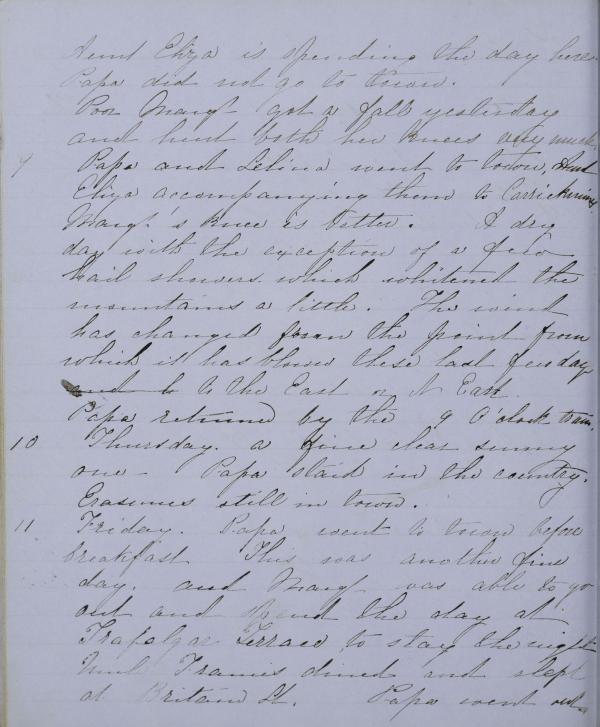 Aunt Eliza is spending the day here.
Papa did not go to town.
Poor Margt got a fall yesterday
and hurt both her knees very much.
9 Papa and Selina went to town, Aunt
Eliza accompanying them to Carrickmines
Margt's knee is better. A dry
day with the exception of a few
hail showers which whitened the
mountains a little. The wind
has changed from the point from
which it has blown these last few days
to the East or N East.
Papa returned by the 9 O'clock train.
10 Thursday. a fine clear sunny
one - Papa staid in the country.
Erasmus still in town.
11 Friday. Papa went to town before
breakfast This was another fine
day. and Margt was able to go
out and spend the day at
Trafalgar Terrace to stay the night
Uncle Francis dined and slept
at Britain St. Papa went out